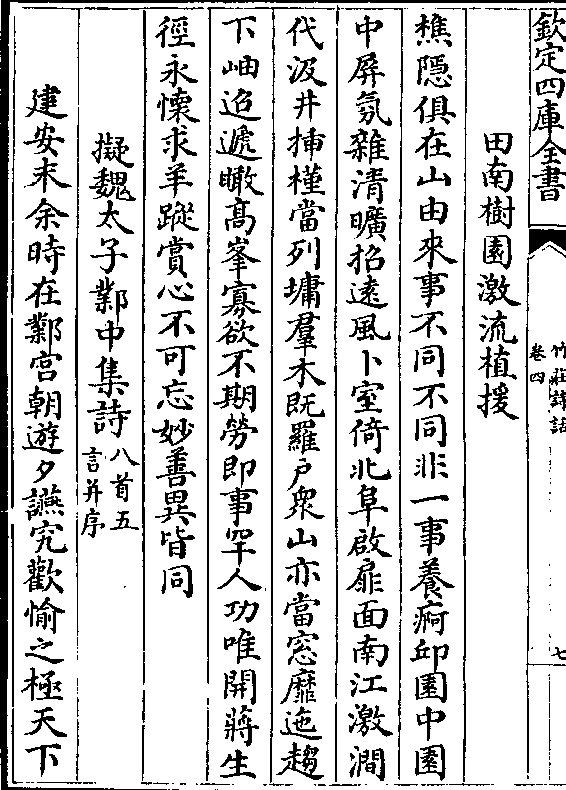 欽定四庫全書
竹莊詩話
卷四
七
田南樹園激流植援
樵隱俱在山由來事不同不同非一事養痾邱園中園
中屏氛雜清曠招遠風卜室倚北阜啟扉面南江激澗
代汲井揷槿當列墉羣木既羅戶衆山亦當窓靡迤趨
下岫迢遞瞰高峯寡欲不期勞即事罕人功唯開蔣生
徑永懷求羊蹤賞心不可忘妙善異皆同
擬魏太子鄴中集詩八首五
言并序
建安末余時在鄴宫朝遊夕讌究歡愉之極天下